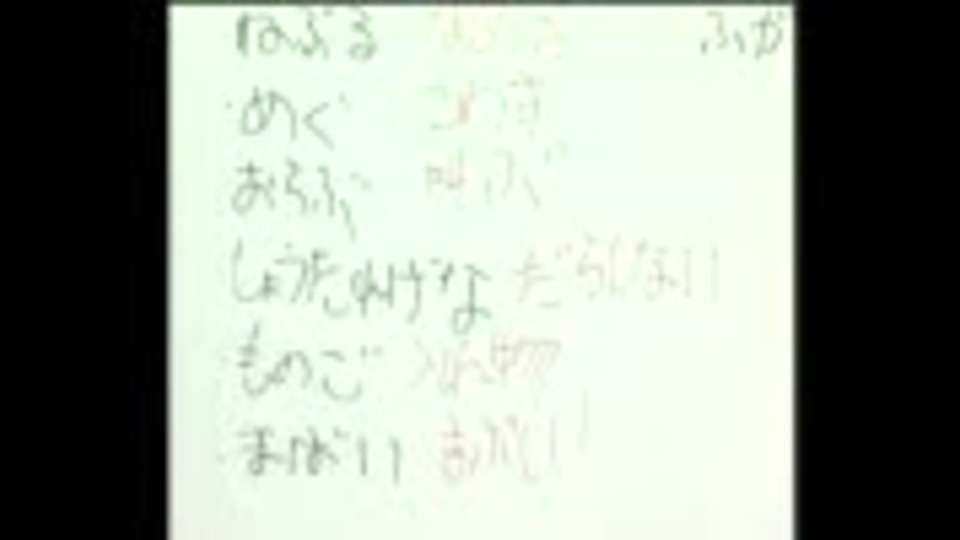 ねぶる ふが
めぐ こわす
おらぶ 叫ぶ
しょうたれげな だらしない
ものご 入れ物
まばいい まぶしい